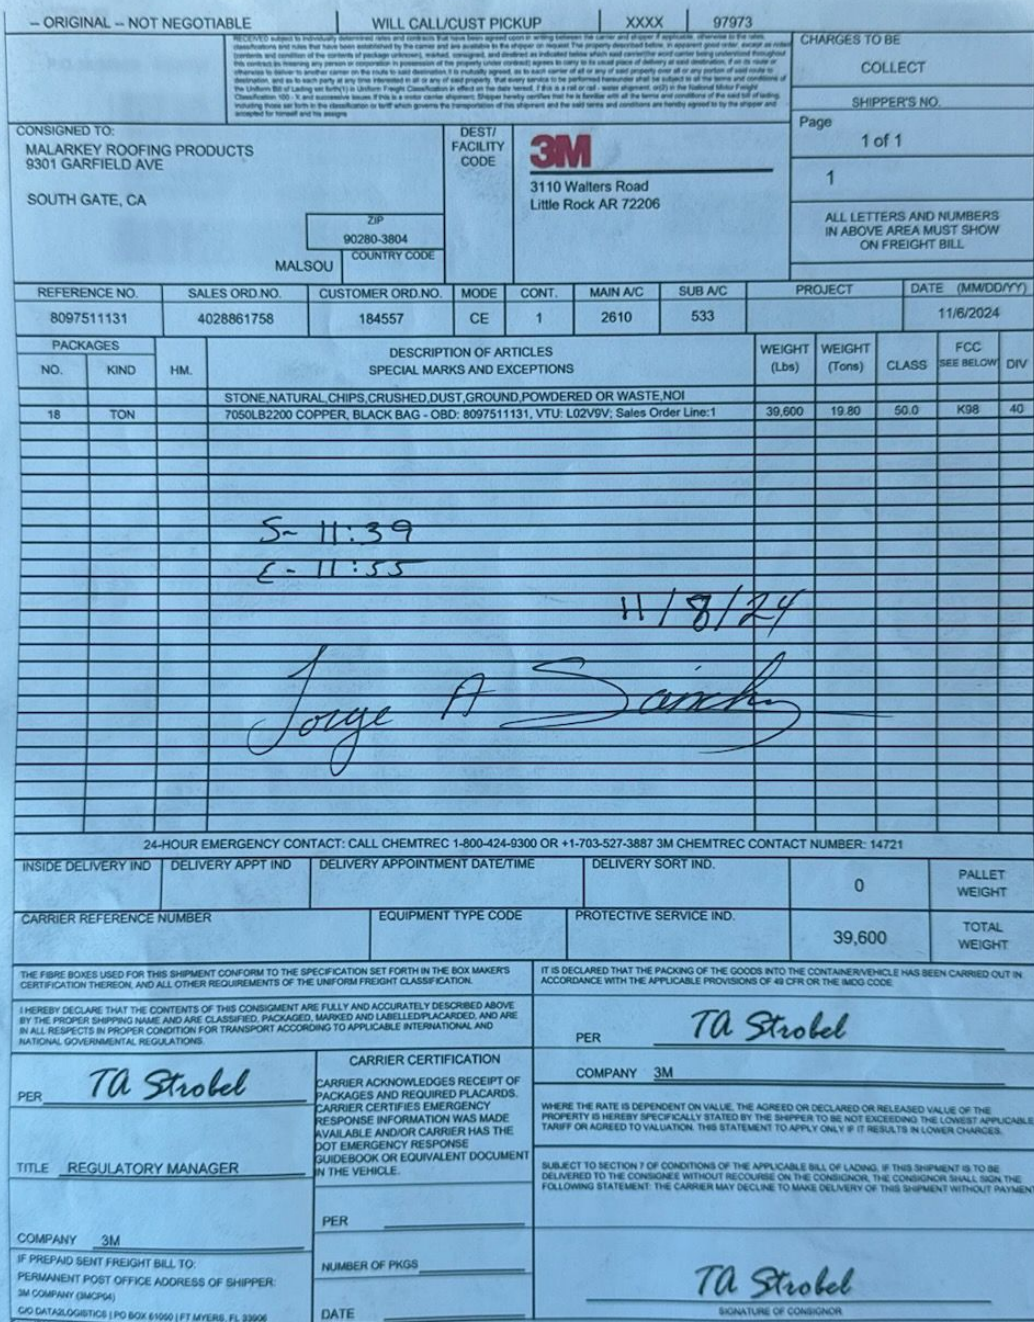 -- ORIGINAL -- NOT NEGOTIABLE
WILL CALL/CUST PICKUP
XXXX
97973
CHARGES TO BE
COLLECT
SHIPPER'S NO.
Page
1 of 1
1
ALL LETTERS AND NUMBERS
IN ABOVE AREA MUST SHOW
ON FREIGHT BILL
CONSIGNED TO:
MALARKEY ROOFING PRODUCTS
9301 GARFIELD AVE
SOUTH GATE, CA
ZIP
90280-3804
MALSOU
COUNTRY CODE
DEST/
FACILITY
CODE
3M
3110 Walters Road
Little Rock AR 72206
REFERENCE NO. SALES ORD.NO. CUSTOMER ORD.NO. MODE CONT. MAIN A/C SUB A/C PROJECT DATE (MM/DD/YY)
8097511131 4028861758 184557 CE 1 2610 533 11/6/2024
PACKAGES
NO. KIND HM.
DESCRIPTION OF ARTICLES
SPECIAL MARKS AND EXCEPTIONS
WEIGHT (Lbs)
WEIGHT (Tons)
CLASS
FCC
SEE BELOW
DIV
STONE,NATURAL,CHIPS,CRUSHED,DUST,GROUND,POWDERED OR WASTE,NOI
18 TON 7050LB2200 COPPER, BLACK BAG - OBD: 8097511131, VTU: L02V9V; Sales Order Line:1 39,600 19.80 50.0 K98 40
S- 11:39
E- 11:55
11/8/24
Jorge A Sanchez
24-HOUR EMERGENCY CONTACT: CALL CHEMTREC 1-800-424-9300 OR +1-703-527-3887 3M CHEMTREC CONTACT NUMBER: 14721
INSIDE DELIVERY IND
DELIVERY APPT IND
DELIVERY APPOINTMENT DATE/TIME
DELIVERY SORT IND.
0
PALLET
WEIGHT
CARRIER REFERENCE NUMBER
EQUIPMENT TYPE CODE
PROTECTIVE SERVICE IND.
39,600
TOTAL
WEIGHT
THE FIBRE BOXES USED FOR THIS SHIPMENT CONFORM TO THE SPECIFICATION SET FORTH IN THE BOX MAKER'S
CERTIFICATION THEREON, AND ALL OTHER REQUIREMENTS OF THE UNIFORM FREIGHT CLASSIFICATION.
I HEREBY DECLARE THAT THE CONTENTS OF THIS CONSIGMENT ARE FULLY AND ACCURATELY DESCRIBED ABOVE
BY THE PROPER SHIPPING NAME AND ARE CLASSIFIED, PACKAGED, MARKED AND LABELLED/PLACARDED, AND ARE
IN ALL RESPECTS IN PROPER CONDITION FOR TRANSPORT ACCORDING TO APPLICABLE INTERNATIONAL AND
NATIONAL GOVERNMENTAL REGULATIONS.
PER TA Strobel
TITLE REGULATORY MANAGER
COMPANY 3M
IF PREPAID SENT FREIGHT BILL TO:
PERMANENT POST OFFICE ADDRESS OF SHIPPER:
3M COMPANY (3MCP04)
C/O DATA2LOGISTICS | PO BOX 61050 | FT MYERS, FL 33906
CARRIER CERTIFICATION
CARRIER ACKNOWLEDGES RECEIPT OF
PACKAGES AND REQUIRED PLACARDS.
CARRIER CERTIFIES EMERGENCY
RESPONSE INFORMATION WAS MADE
AVAILABLE AND/OR CARRIER HAS THE
DOT EMERGENCY RESPONSE
GUIDEBOOK OR EQUIVALENT DOCUMENT
IN THE VEHICLE.
PER
NUMBER OF PKGS
DATE
IT IS DECLARED THAT THE PACKING OF THE GOODS INTO THE CONTAINER/VEHICLE HAS BEEN CARRIED OUT IN
ACCORDANCE WITH THE APPLICABLE PROVISIONS OF 49 CFR OR THE IMDG CODE
PER TA Strobel
COMPANY 3M
WHERE THE RATE IS DEPENDENT ON VALUE, THE AGREED OR DECLARED OR RELEASED VALUE OF THE
PROPERTY IS HEREBY SPECIFICALLY STATED BY THE SHIPPER TO BE NOT EXCEEDING THE LOWEST APPLICABLE
TARIFF OR AGREED TO VALUATION. THIS STATEMENT TO APPLY ONLY IF IT RESULTS IN LOWER CHARGES.
SUBJECT TO SECTION 7 OF CONDITIONS OF THE APPLICABLE BILL OF LADING, IF THIS SHIPMENT IS TO BE
DELIVERED TO THE CONSIGNEE WITHOUT RECOURSE ON THE CONSIGNOR, THE CONSIGNOR SHALL SIGN THE
FOLLOWING STATEMENT: THE CARRIER MAY DECLINE TO MAKE DELIVERY OF THIS SHIPMENT WITHOUT PAYMENT
TA Strobel
SIGNATURE OF CONSIGNOR